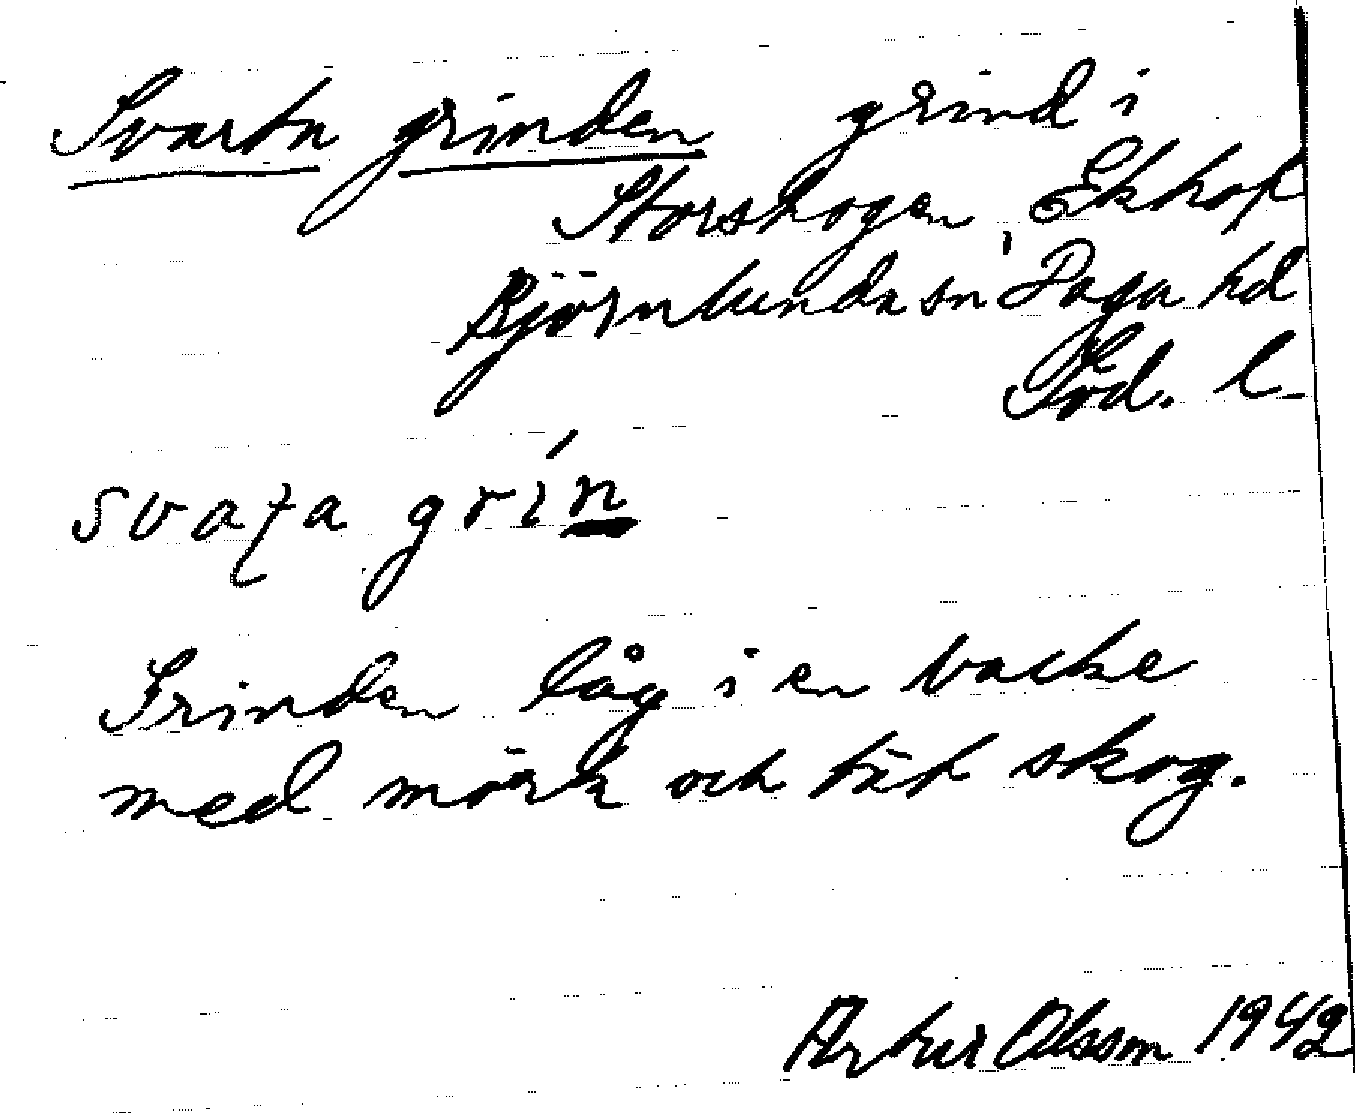 Svarta grinden grind i
Storskogen, Ekhof
Björnlunda sn Daga hd
Söd. l.
svaʈa grín
Grinden låg i en backe
med mörk och tät skog.
Artur Olsson 1942